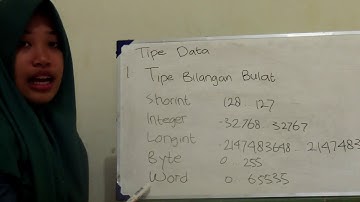 Tipe Data
1 Tipe Bilangan Bulat
Shorint 128 127
Integer -32768..32767
Longint -2147483648..2147483
Byte 0 255
Word 0 65535